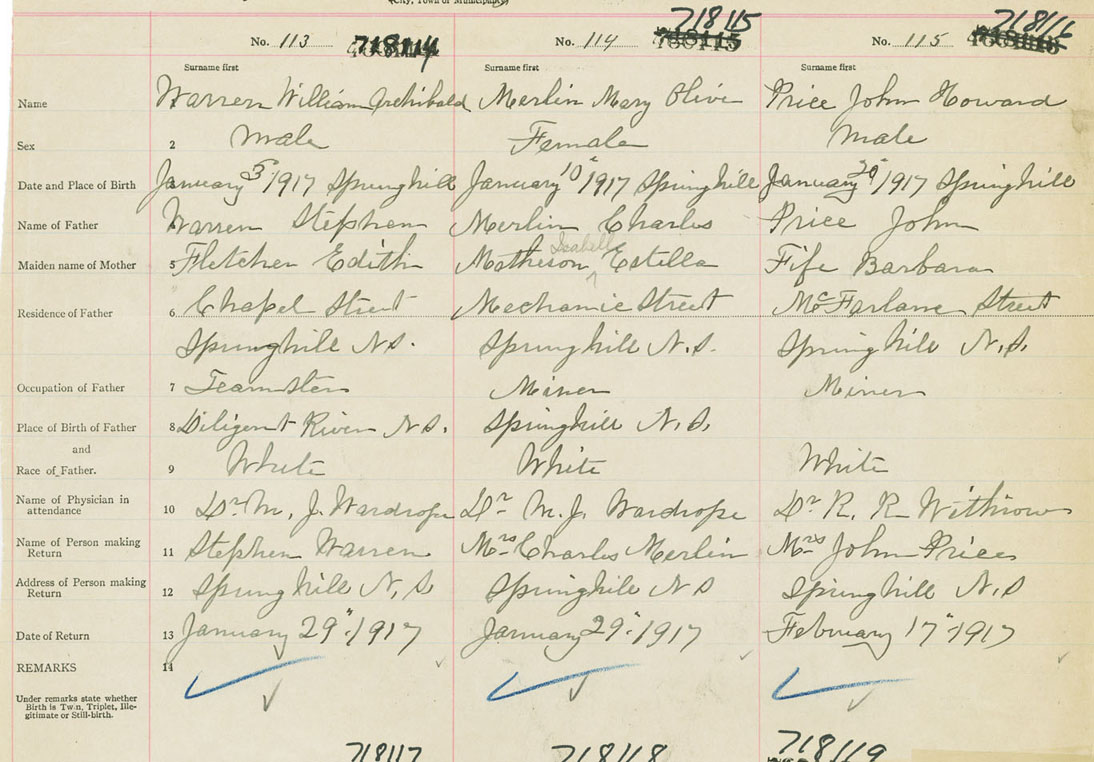 (City, Town or Municipality)
718115 718116
No. 113 718114 No. 114 No. 115
Surname first Surname first Surname first
Name Warren William Archibald Merlin Mary Olive Price John Howard
Sex 2 Male Female Male
Date and Place of Birth January 1917 Springhill January 10" 1917 Springhill January 1917 Springhill
Name of Father Warren Stephen Merlin Charles Price John
Isabelle
Maiden name of Mother 5 Fletcher Edith Matheson ^ Estella Fife Barbara
Residence of Father 6 Chapel Street Mechanic Street McFarlane Street
Springhill N.S. Springhill N.S. Springhill N.S.
Occupation of Father 7 Teamster Miner Miner
Place of Birth of Father 8 Diligent River N.S. Springhill N.S.
and
Race of Father. 9 White White White
Name of Physician in
attendance 10 Dr. M. J. Wardrope Dr M. J. Wardrope Dr R. R. Withrow
Name of Person making
Return 11 Stephen Warren Mrs Charles Merlin Mrs John Price
Address of Person making
Return 12 Springhill N.S Springhill N S Springhill N.S
Date of Return 13 January 29" 1917 January 29" 1917 February 17" 1917
REMARKS 14
Under remarks state whether
Birth is Twin, Triplet, Ille-
gitimate or Still-birth.
718117 718118 718119